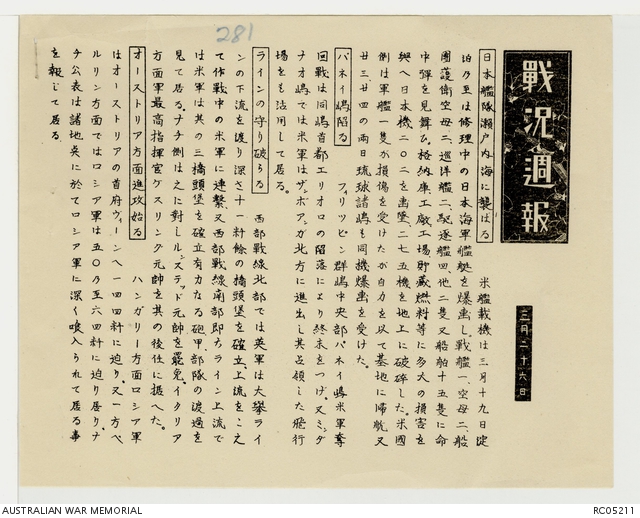 281
戰況週報
三月二十六日
日本艦隊瀨戸内海に襲はる 米艦載機は三月十九日淀
泊乃至は修理中の日本海軍艦艇を爆画し戦艦一、空母二、船
團護衛空母二、巡洋艦二、駆逐艦四他二隻又船舶十五隻に命
中弾を見舞ひ格納庫工廠工場貯蔵燃料等に多大の損害を
與へ日本機二〇二を画墜、二七五機を地上に破碎した。米國
側は軍艦一隻が損傷を受けたが自力を以て基地に帰航又
廿三、廿四の両日琉球諸嶋も同機爆画を受けた。
パネイ嶋陥る フィリッピン群嶋中央部パネイ嶋米軍奪
回戰は同嶋首都エリオロの陥落により終末をつげ、又ミンダ
ナオ嶋では米軍はザンボアンガ北方に進出し其占領した飛行
場をも活用して居る。
ラインの守り破らる 西部戰線北部では英軍は大擧ライ
ンの下流を渡り深さ十一粁餘の橋頭堡を確立、上流をこえ
て作戰中の米軍に連繫、又西部戰線南部即ちライン上流で
は米軍は其の三橋頭堡を確立有力なる砲甲部隊の渡過を
見て居る。ナチ側は之に對しルンステッド元帥を罷免、イタリア
方面軍最高指揮官ケスリング元帥を其の後任に据へた。
オーストリア方面進攻始る ハンガリー方面ロシア軍
はオーストリアの首府ウィーンへ一四四粁に迫り、又一方ベ
ルリン方面ではロシア軍は五〇乃至六四粁に迫り居り、ナ
チ公表は諸地奌に於てロシア軍に深く喰入られて居る事
を報じて居る。
AUSTRALIAN WAR MEMORIAL
RC05211